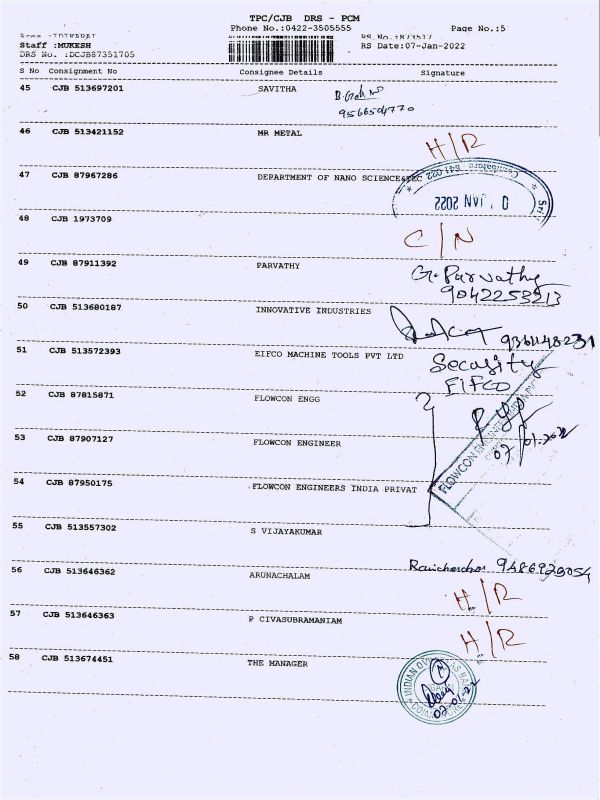 TPC/CJB DRS - PCM
Phone No.:0422-3505555 Page No.:5
Staff :MUKESH RS Date:07-Jan-2022
DRS No. :DCJB87351705
S No Consignment No Consignee Details Signature
45 CJB 513697201 SAVITHA
9566504770
46 CJB 513421152 MR METAL
H/R
47 CJB 87967286 DEPARTMENT OF NANO SCIENCE&TEC
Coimbatore 641 022
JAN 2022
Sri
48 CJB 1973709
C/N
49 CJB 87911392 PARVATHY G. Parvathy
9042253213
50 CJB 513680187 INNOVATIVE INDUSTRIES
51 CJB 513572393 EIFCO MACHINE TOOLS PVT LTD Security
EIFCO
52 CJB 87815871 FLOWCON ENGG
53 CJB 87907127 FLOWCON ENGINEER
07/01.2022
54 CJB 87950175 FLOWCON ENGINEERS INDIA PRIVAT
55 CJB 513557302 S VIJAYAKUMAR
56 CJB 513646362 ARUNACHALAM
H/R
57 CJB 513646363 P CIVASUBRAMANIAM
H/R
58 CJB 513674451 THE MANAGER
INDIAN OVERSEAS BANK
07-01-22